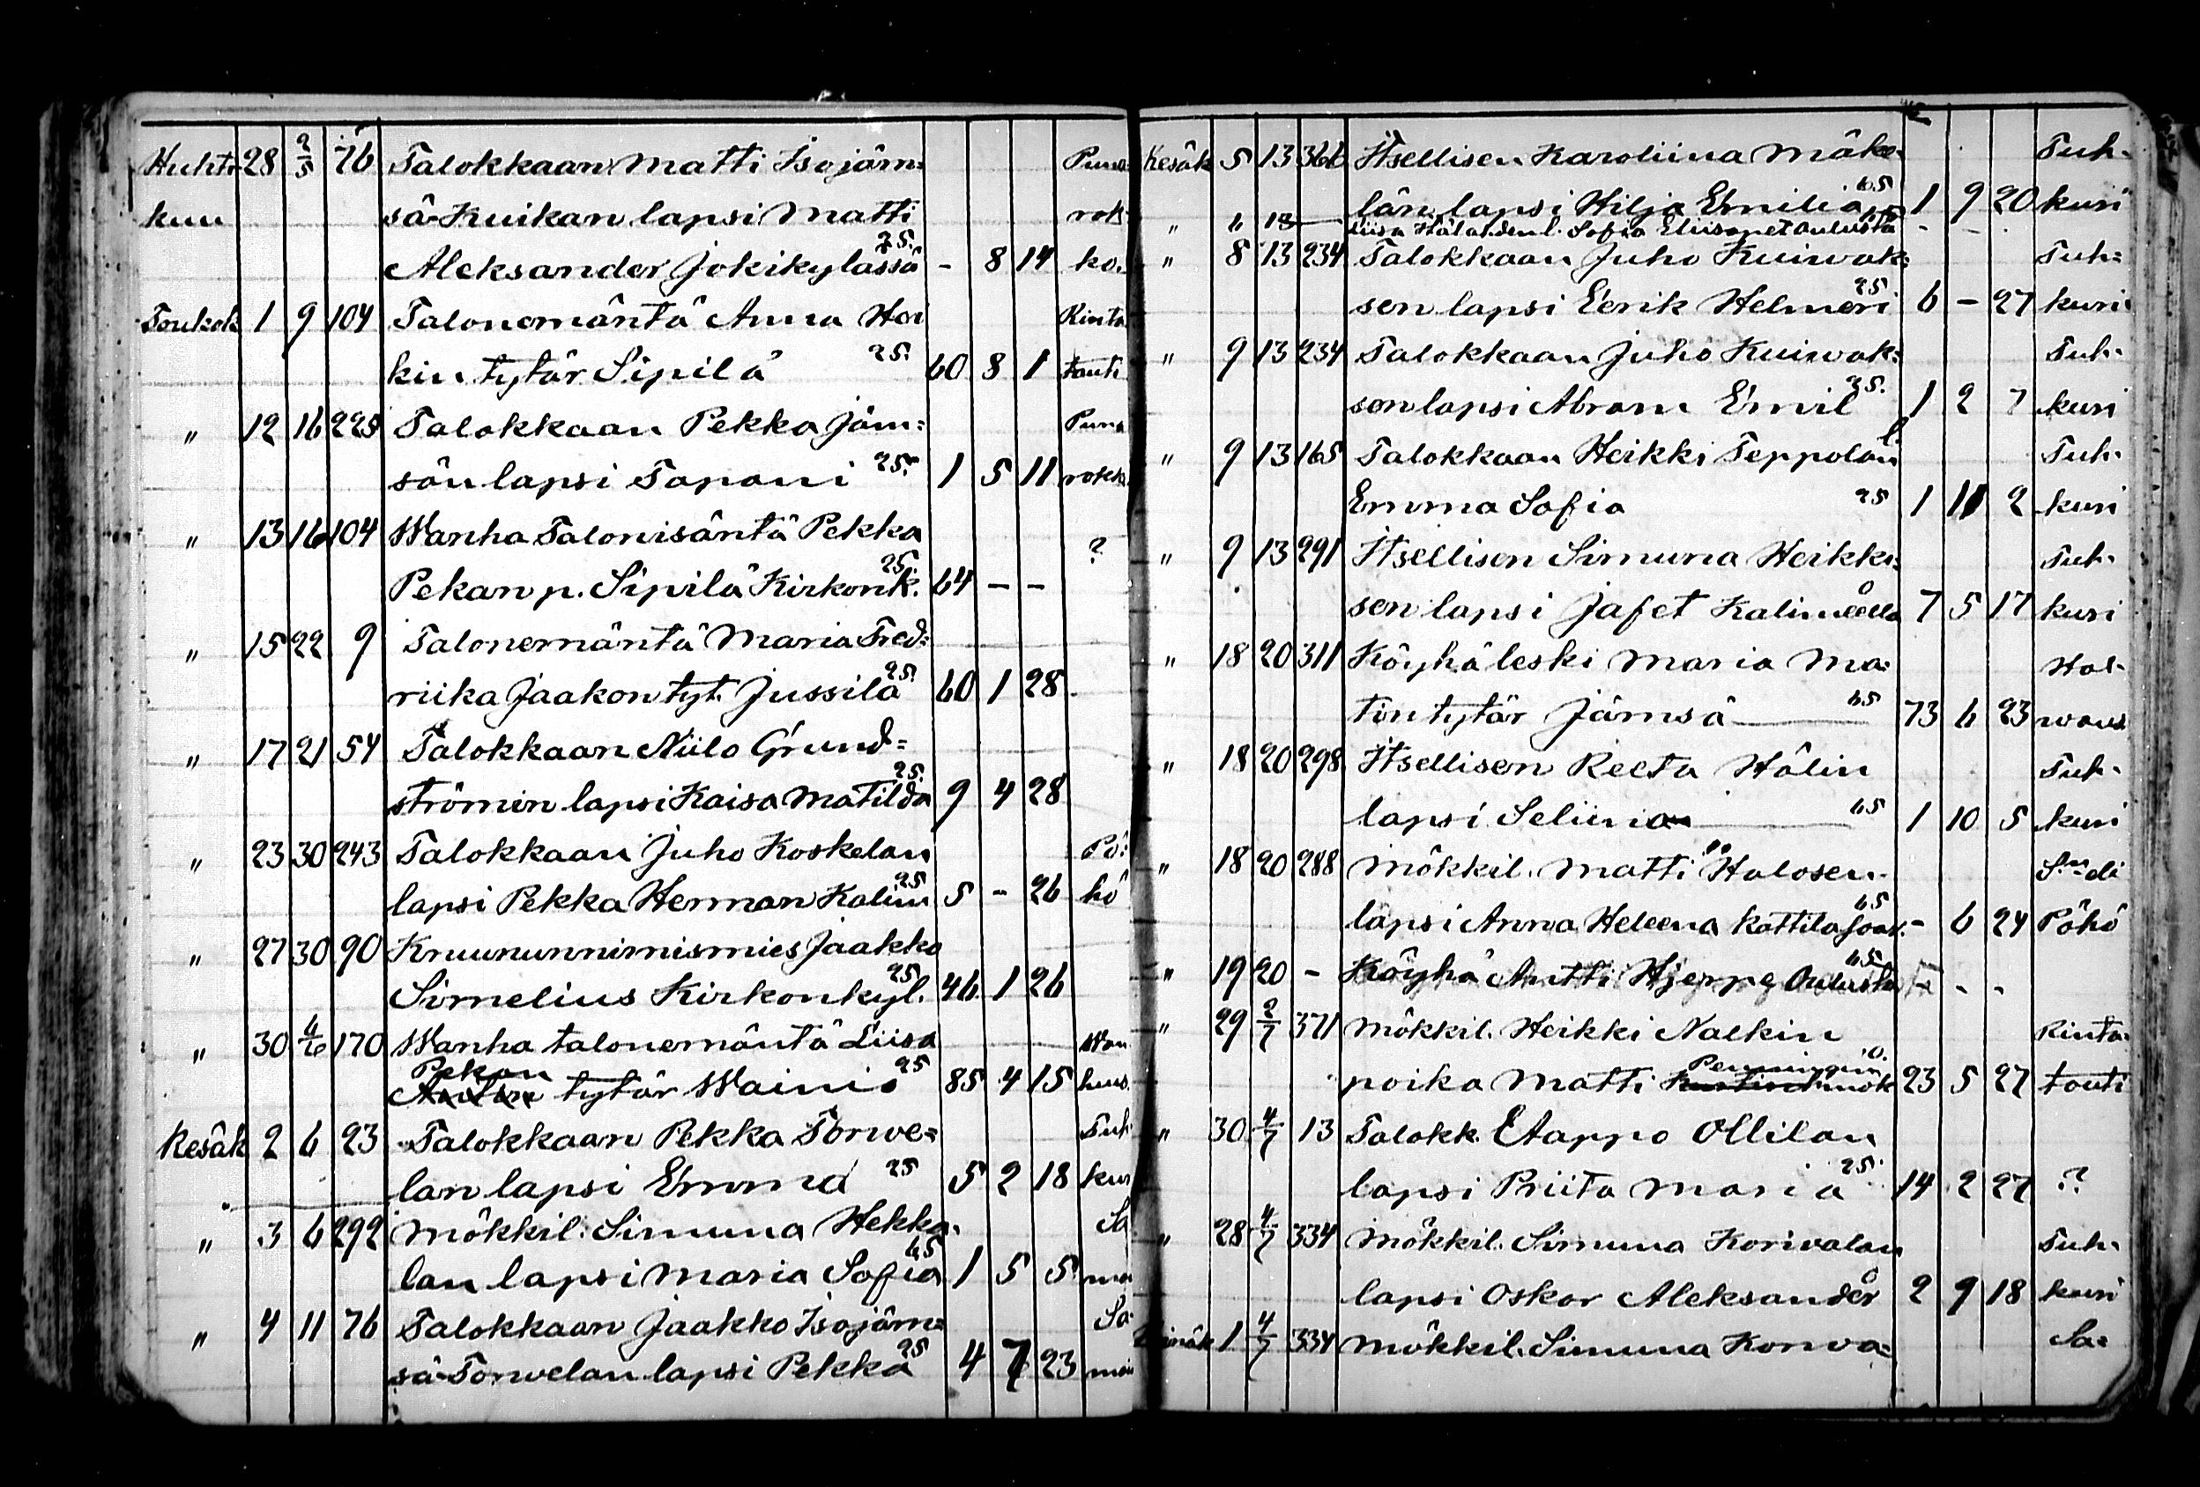 Huhti- 28 2/5 76 Talokkaan Matti Isojäm= Puna-
kuu sä-Kuikan lapsi Matti rok-
Aleksander Jokikylässä 25. - 8 14 ko.
Toukok 1 9 104 Talonemäntä Anna Hei Rinta
kin tytär Sipilä 25. 60 8 1 tauti
" 12 16 225 Talokkaan Pekka Jäm= Puna
sän lapsi Tapani 25. 1 5 11 rokko
" 13 16 104 Wanha Talonisäntä Pekka ?
Pekan p. Sipilä Kirkonk. 25. 64 - -
" 15 22 9 Talonemäntä Maria Fred=
riika Jaakon tyt. Jussila 25. 60 1 28
" 17 21 54 Talokkaan Niilo Grund=
strömin lapsi Kaisa Matilda 25. 9 4 28
" 23 30 243 Talokkaan Juho Koskelan Pö=
lapsi Pekka Herman Kalim 25 5 - 26 hö
" 27 30 90 Kruununnimismies Jaakko
Simelius Kirkonkyl. 25. 46 1 26
" 30 4/6 170 Wanha talonemäntä Liisa Wan
Pekan
Antin tytär Wainio 25 85 4 15 huus.
Kesäk 2 6 23 Talokkaan Pekka Torwe= Tuh
lan lapsi Emma 25 5 2 18 kur
" 3 6 292 Mökkil. Simuna Hekka- Sa
lan lapsi Maria Sofia 65 1 5 5 ma
" 4 11 76 Talokkaan Jaakko Isojäm= Sa
sä-Torwelan lapsi Pekka 25 4 7 23 ma
Kesäk 5 13 366 Itsellisen Karoliina Mäke- Tuh-
län lapsi Hilja Emilia 65 1 9 20 kuri
" 6 13 Liisa Hälanden l. Sofia Eliisapet Oulusta - - -
" 8 13 234 Talokkaan Juho Kuiwak= Tuh=
sen lapsi Eerik Helmeri 25 6 - 27 kuri
" 9 13 234 Talokkaan Juho Kuiwak= Tuh-
sen lapsi Abram Emil 25. 1 2 7 kuri
" 9 13 165 Talokkaan Heikki Teppolan l. Tuh-
Emma Sofia 25 1 11 2 kuri
" 9 13 291 Itsellisen Simuna Heikki= Tuh-
sen lapsi Jafet Kalimeellä 7 5 17 kuri
" 18 20 311 Köyhä leski Maria Ma= Hal-
tin tytär Jämsä 65 73 6 23 waus
" 18 20 298 Itsellisen Reeta Hälin Tuh-
lapsi Seliina 65 1 10 5 kuri
" 18 20 288 Mökkil. Matti Halosen
lapsi Anna Heleena Kattilasaar. 65 - 6 24 Pöhö
" 19 20 - Köyhä Antti Hjerpe Oulusta 65 - - -
" 29 2/7 371 Mökkil. Heikki Nalkin Rinta-
poika Matti 23 5 27 tauti
" 30 4/7 13 Talokk. Aappo Ollilan
lapsi Priita Maria 25. 14 2 27 ?
" 28 4/7 334 Mökkil. Simuna Koriwalan Tuh-
lapsi Oskar Aleksander 2 9 18 kuri
Heinäk 1 4/7 334 Mökkil. Simuna Korwa= Sa=